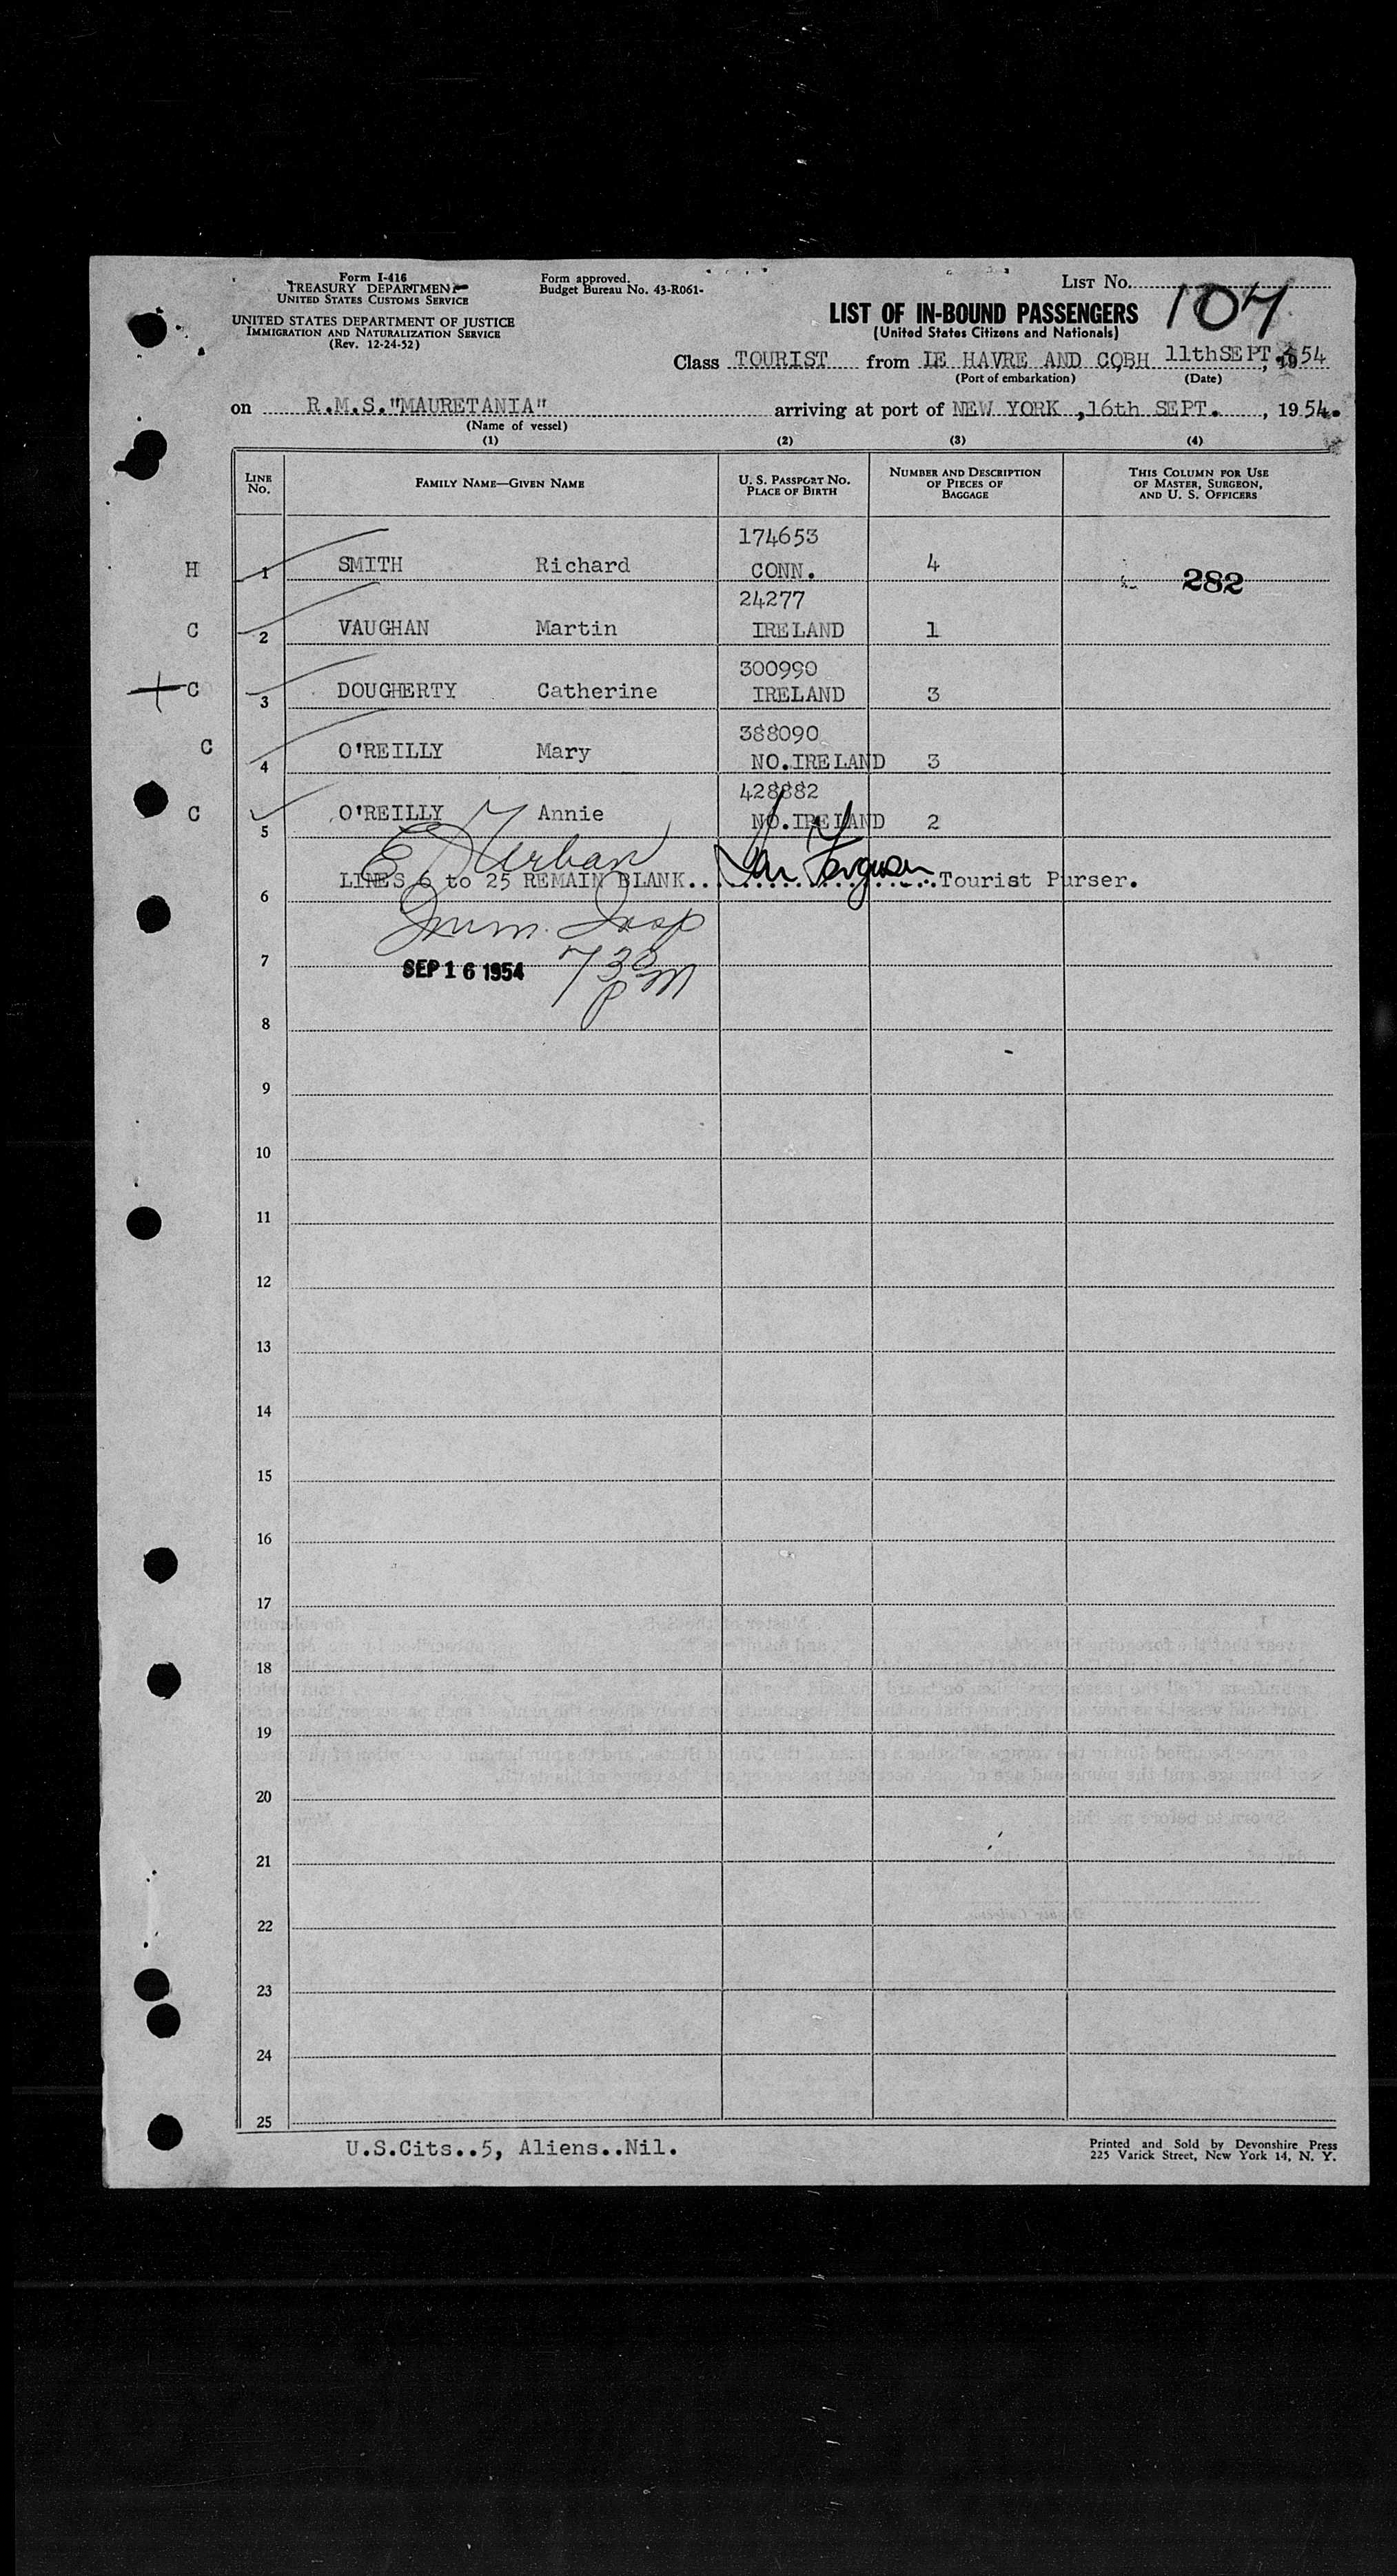 Form I-416
TREASURY DEPARTMENT
UNITED STATES CUSTOMS SERVICE
UNITED STATES DEPARTMENT OF JUSTICE
IMMIGRATION AND NATURALIZATION SERVICE
(Rev. 12-24-52)
Form approved.
Budget Bureau No. 43-R061-
LIST NO. 107
LIST OF IN-BOUND PASSENGERS
(United States Citizens and Nationals)
Class TOURIST from LE HAVRE AND COBH 11thSEPT, 1954
(Port of embarkation) (Date)
on R.M.S."MAURETANIA" arriving at port of NEW YORK ,16th SEPT. , 1954.
(Name of vessel)
(1) (2) (3) (4)
LINE NO. FAMILY NAME—GIVEN NAME U. S. PASSPORT NO. PLACE OF BIRTH NUMBER AND DESCRIPTION OF PIECES OF BAGGAGE THIS COLUMN FOR USE OF MASTER, SURGEON, AND U. S. OFFICERS
174653
H 1 SMITH Richard CONN. 4 282
24277
C 2 VAUGHAN Martin IRELAND 1
300990
+ C 3 DOUGHERTY Catherine IRELAND 3
388090
C 4 O'REILLY Mary NO.IRELAND 3
428882
C 5 O'REILLY Annie NO.IRELAND 2
E Urban
6 LINES 6 to 25 REMAIN BLANK.. Ian Ferguson Tourist Purser.
Imm. Insp
7 SEP 16 1954 730 pm
8
9
10
11
12
13
14
15
16
17
18
19
20
21
22
23
24
25
U.S.Cits..5, Aliens..Nil.
Printed and Sold by Devonshire Press
225 Varick Street, New York 14, N. Y.